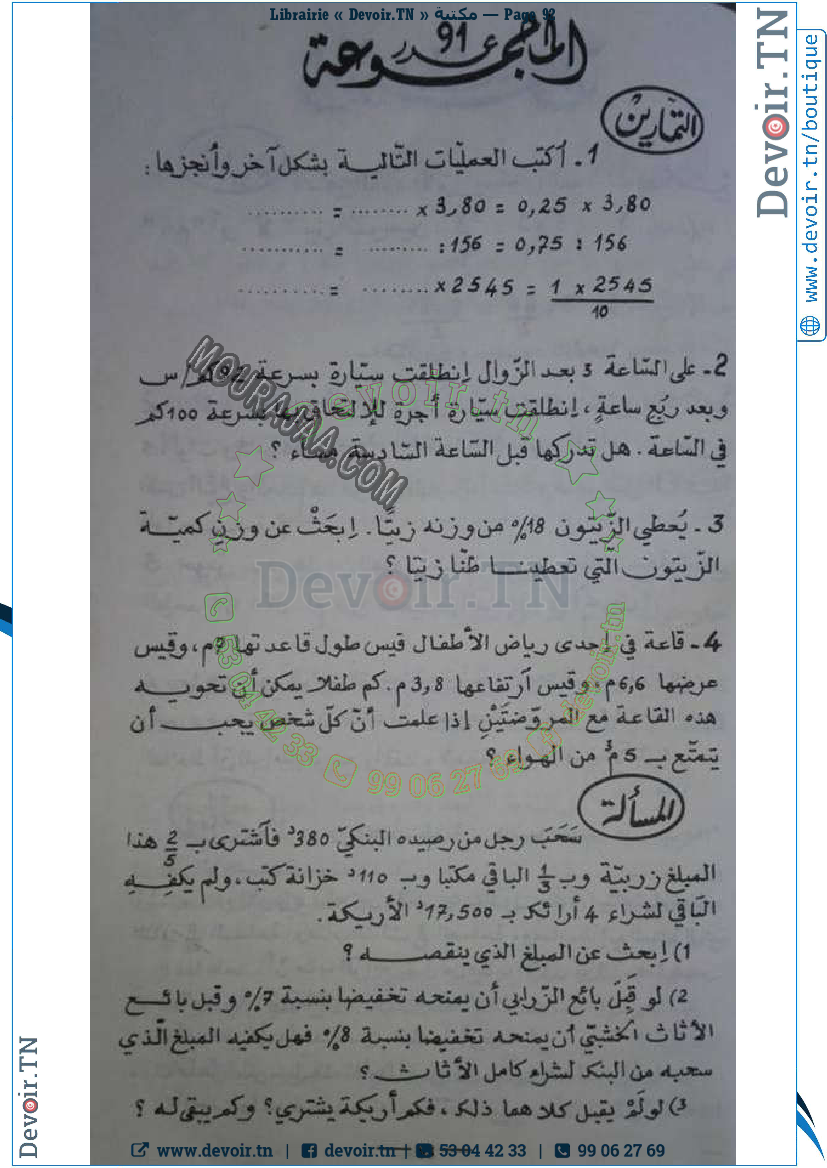 Librairie « Devoir.TN » مكتبة — Page 92
المجموعة عدد 91
التمارين
1 - أكتب العمليّات التّالية بشكل آخر وأنجزها :
3,80 x 0,25 = 3,80 x ........ = ..........
156 : 0,75 = 156 : ........ = ..........
2545 x 1 / 10 = 2545 x ........ = ..........
2 - على السّاعة 3 بعد الزّوال إنطلقت سيّارة بسرعة 92 كم/س
وبعد ربع ساعةٍ ، إنطلقت سيّارة أجرة للإلتحاق بها بسرعة 100 كم
في السّاعة . هل تدركها قبل السّاعة السّادسة مساء ؟
3 - يُعطي الزّيتون 18% من وزنه زيتًا . إبحَثْ عن وزنِ كميّة
الزّيتون الّتي تعطينا طنّا زيتا ؟
4 - قاعة في إحدى رياض الأطفال قيس طول قاعدتها 7م ، وقيس
عرضها 6,6م ، وقيس آرتفاعها 3,8م . كم طفلا يمكن أن تحويه
هذه القاعة مع المروّضتَيْنِ إذا علمت أنّ كلّ شخص يجب أن
يتمتّع بـ 5 م³ من الهواء ؟
المسألة
سَحَبَ رجل من رصيده البنكيّ 380د فآشترى بـ 2/5 هذا
المبلغ زربيّة وب 1/3 الباقي مكتبا وب 110د خزانة كتب ، ولم يكفِهِ
الباقي لشراء 4 أرائك بـ 17,500د الأريكة .
1) إبحث عن المبلغ الذي ينقصه ؟
2) لو قَبِلَ بائع الزّرابي أن يمنحه تخفيضا بنسبة 7% وقبل بائع
الأثاث الخشبّي أن يمنحه تخفيضا بنسبة 8% فهل يكفيه المبلغ الّذي
سحبه من البنك لشراء كامل الأثاث ؟
3) لو لَمْ يقبل كلاهما ذلك ، فكم أريكة يشتري ؟ وكم يبقى له ؟
MOURAJAA.COM
devoir.tn
Devoir.TN
53 04 42 33 99 06 27 69 devoir.tn
Devoir.TN
www.devoir.tn/boutique
Devoir.TN
www.devoir.tn | devoir.tn | 53 04 42 33 | 99 06 27 69